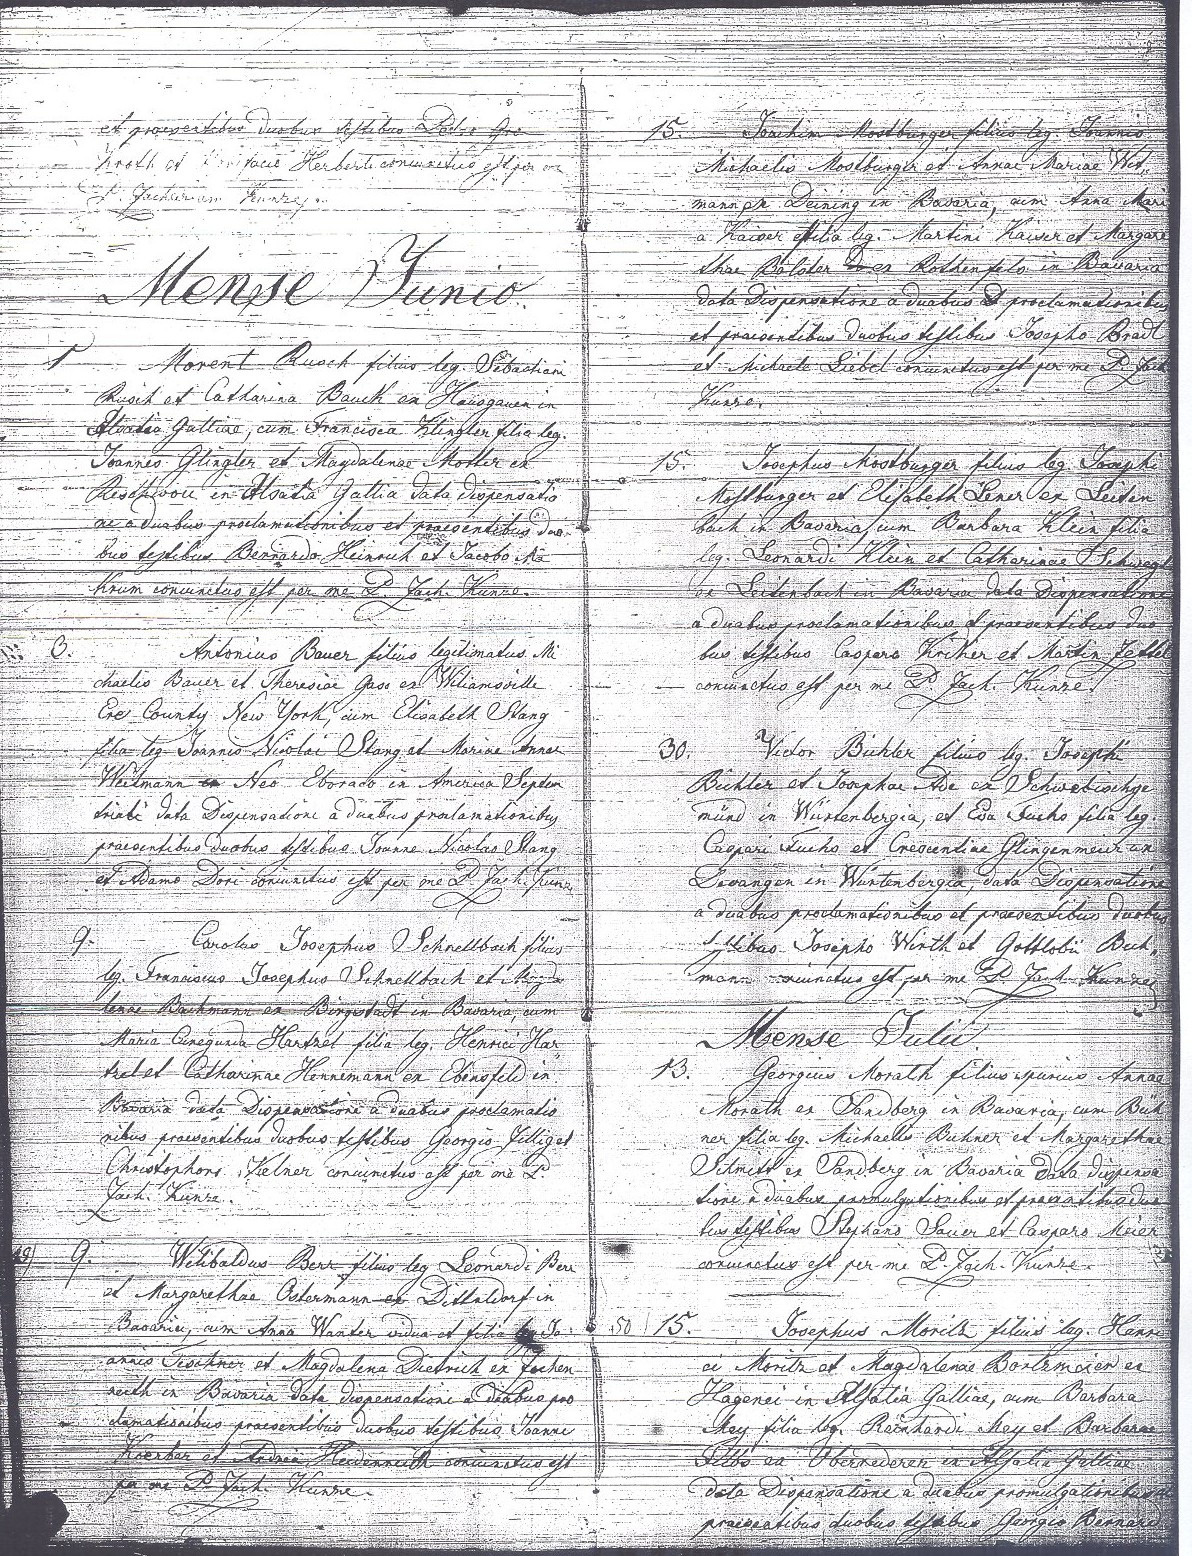 et praesentibus duobus testibus Petro
Kroth et Bonifacio Herberti coniunctus est per me
P. Zachariam Kunze.
Mense Junio
1 Morent Rusch filius leg. Sebastiani
Rusch et Catharina Bauch ex Hausgauen in
Alsatia Galliae, cum Francisca Klingler filia leg.
Joannes Glingler et Magdalenae Motter ex
in Alsatia Gallia data dispensatio
ne a duabus proclamationibus et praesentibus duo
bus testibus Bernardo Heinrich et Jacobo Ma
krum coniunctus est per me P. Zach. Kunze.
3. Antonius Bauer filius legitimatus Mi
chaelis Bauer et Theresiae Gass ex Wiliamsville
Ere County New York, cum Elisabeth Stang
filia leg. Joannis Nicolai Stang et Mariae Annae
Weitmann ex Neo Eborado in America Septen
triali data Dispensatione a duabus proclamationibus,
praesentibus duobus testibus Joanne Nicolao Stang
et Adamo Dori coniunctus est per me P. Zach. Kunze
9. Carolus Josephus Schnellbach filius
leg. Franciscus Josephus Schnellbach et Magda
lenae Bachmann ex Birgstadt in Bavaria, cum
Maria Cunegunda Hartzel filia leg. Henrici Har
tzel et Catharinae Hennemann ex Ebensfeld in
Bavaria data Dispensatione a duabus proclamatio
nibus praesentibus duobus testibus Georgio Zillig et
Christophoro Kelner coniunctus est per me P.
Zach. Kunze.
49) 9. Wilibaldus Berr filius leg Leonardi Berr
et Margarethae Ostermann ex Ditteldorf in
Bavaria, cum Anna Wunter vidua et filia leg Jo-
annis Tischner et Magdalena Dietrich ex
reith in Bavaria data dispensatione a duabus pro
clamationibus praesentibus duobus testibus Joanne
Koerber et Andrea Heidenreich coniunctus est
per me P. Zach. Kunze.
15. Joachim Mostburger filius leg. Joannis
Michaelis Mostburger et Annae Mariae Wit,
mann ex Deining in Bavaria, cum Anna Mari
a Kaiser filia leg. Martini Kaiser et Margare
thae Balder ex Rothenfels in Bavaria
data Dispensatione a duabus proclamationibus
et praesentibus duobus testibus Josepho Bradl
et Michaele Liebel coniunctus est per me P. Zach
Kunze.
15. Josephus Mostburger filius leg Josephi
Mostburger et Elisabeth Lener ex Leiten
bach in Bavaria, cum Barbara Klein filia
leg. Leonardi Klein et Catharinae Schwagl
ex Leitenbach in Bavaria data Dispensatione
a duabus proclamationibus et praesentibus duo
bus testibus Casparo Kriher et Martin Zettl
coniunctus est per me P. Zach. Kunze.
30. Victor Bühler filius leg. Josephi
Bühler et Josephae Ade ex Schwäbischge
münd in Würtenbergia, et Eva Fuchs filia leg.
Caspari Fuchs et Crescentiae Glingenmeier ex
in Würtenbergia, data Dispensatione
a duabus proclamationibus et praesentibus duobus
testibus Josepho Wirth et Gottlobü Buh-
mann coniunctus est per me P. Zach. Kunze
Mense Julii
13. Georgius Morath filius spurius Annae
Morath ex Sandberg in Bavaria, cum Büh
ner filia leg. Michaelis Buhner et Margarethae
Silmitt ex Sandberg in Bavaria data dispensa
tione a duabus promulgationibus et praesentibus duo
bus testibus Stephano Sauer et Casparo Meier
coniunctus est per me P. Zach. Kunze.
50 15. Josephus Moritz filius leg. Henri
ci Moritz et Magdalenae Bortzmeier ex
Hagenei in Alsatia Galliae, cum Barbara
Mey filia leg. Reinhardi Mey et Barbarae
ex Obernederer in Alsatia Galliae
data Dispensatione a duabus promulgationibus et
praesentibus duobus testibus Georgio Bernard